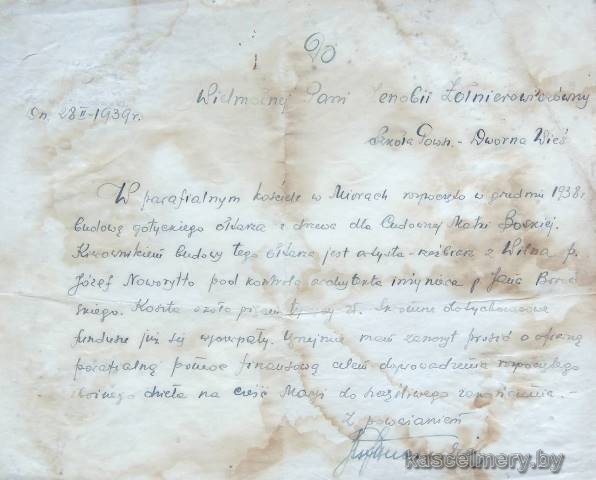 Do
Wielmożnej Pani Zenobii Żołnierowiczówny
Dn. 28 II-1939r.
Szkoła Powsz. - Dworna Wieś
W parafialnym kościele w Miorach rozpoczęto w grudniu 1938r
budowę gotyckiego ołtarza z drzewa dla Cudownej Matki Boskiej.
Kierownikiem budowy tego ołtarza jest artysta-rzeźbiarz z Wilna p.
Józef Noworytto pod kontrolą architekta inżyniera p Jana Borow
skiego. Koszta około zł. Skromne dotychczasowe
fundusze już się wyczerpały. Uprzejmie mam zaszczyt prosić o ofiarną
parafialną pomoc finansową celem doprowadzenia rozpoczętego
dzieła na cześć Maryi do szczęśliwego zakończenia.
Z poważaniem
kascelmery.by